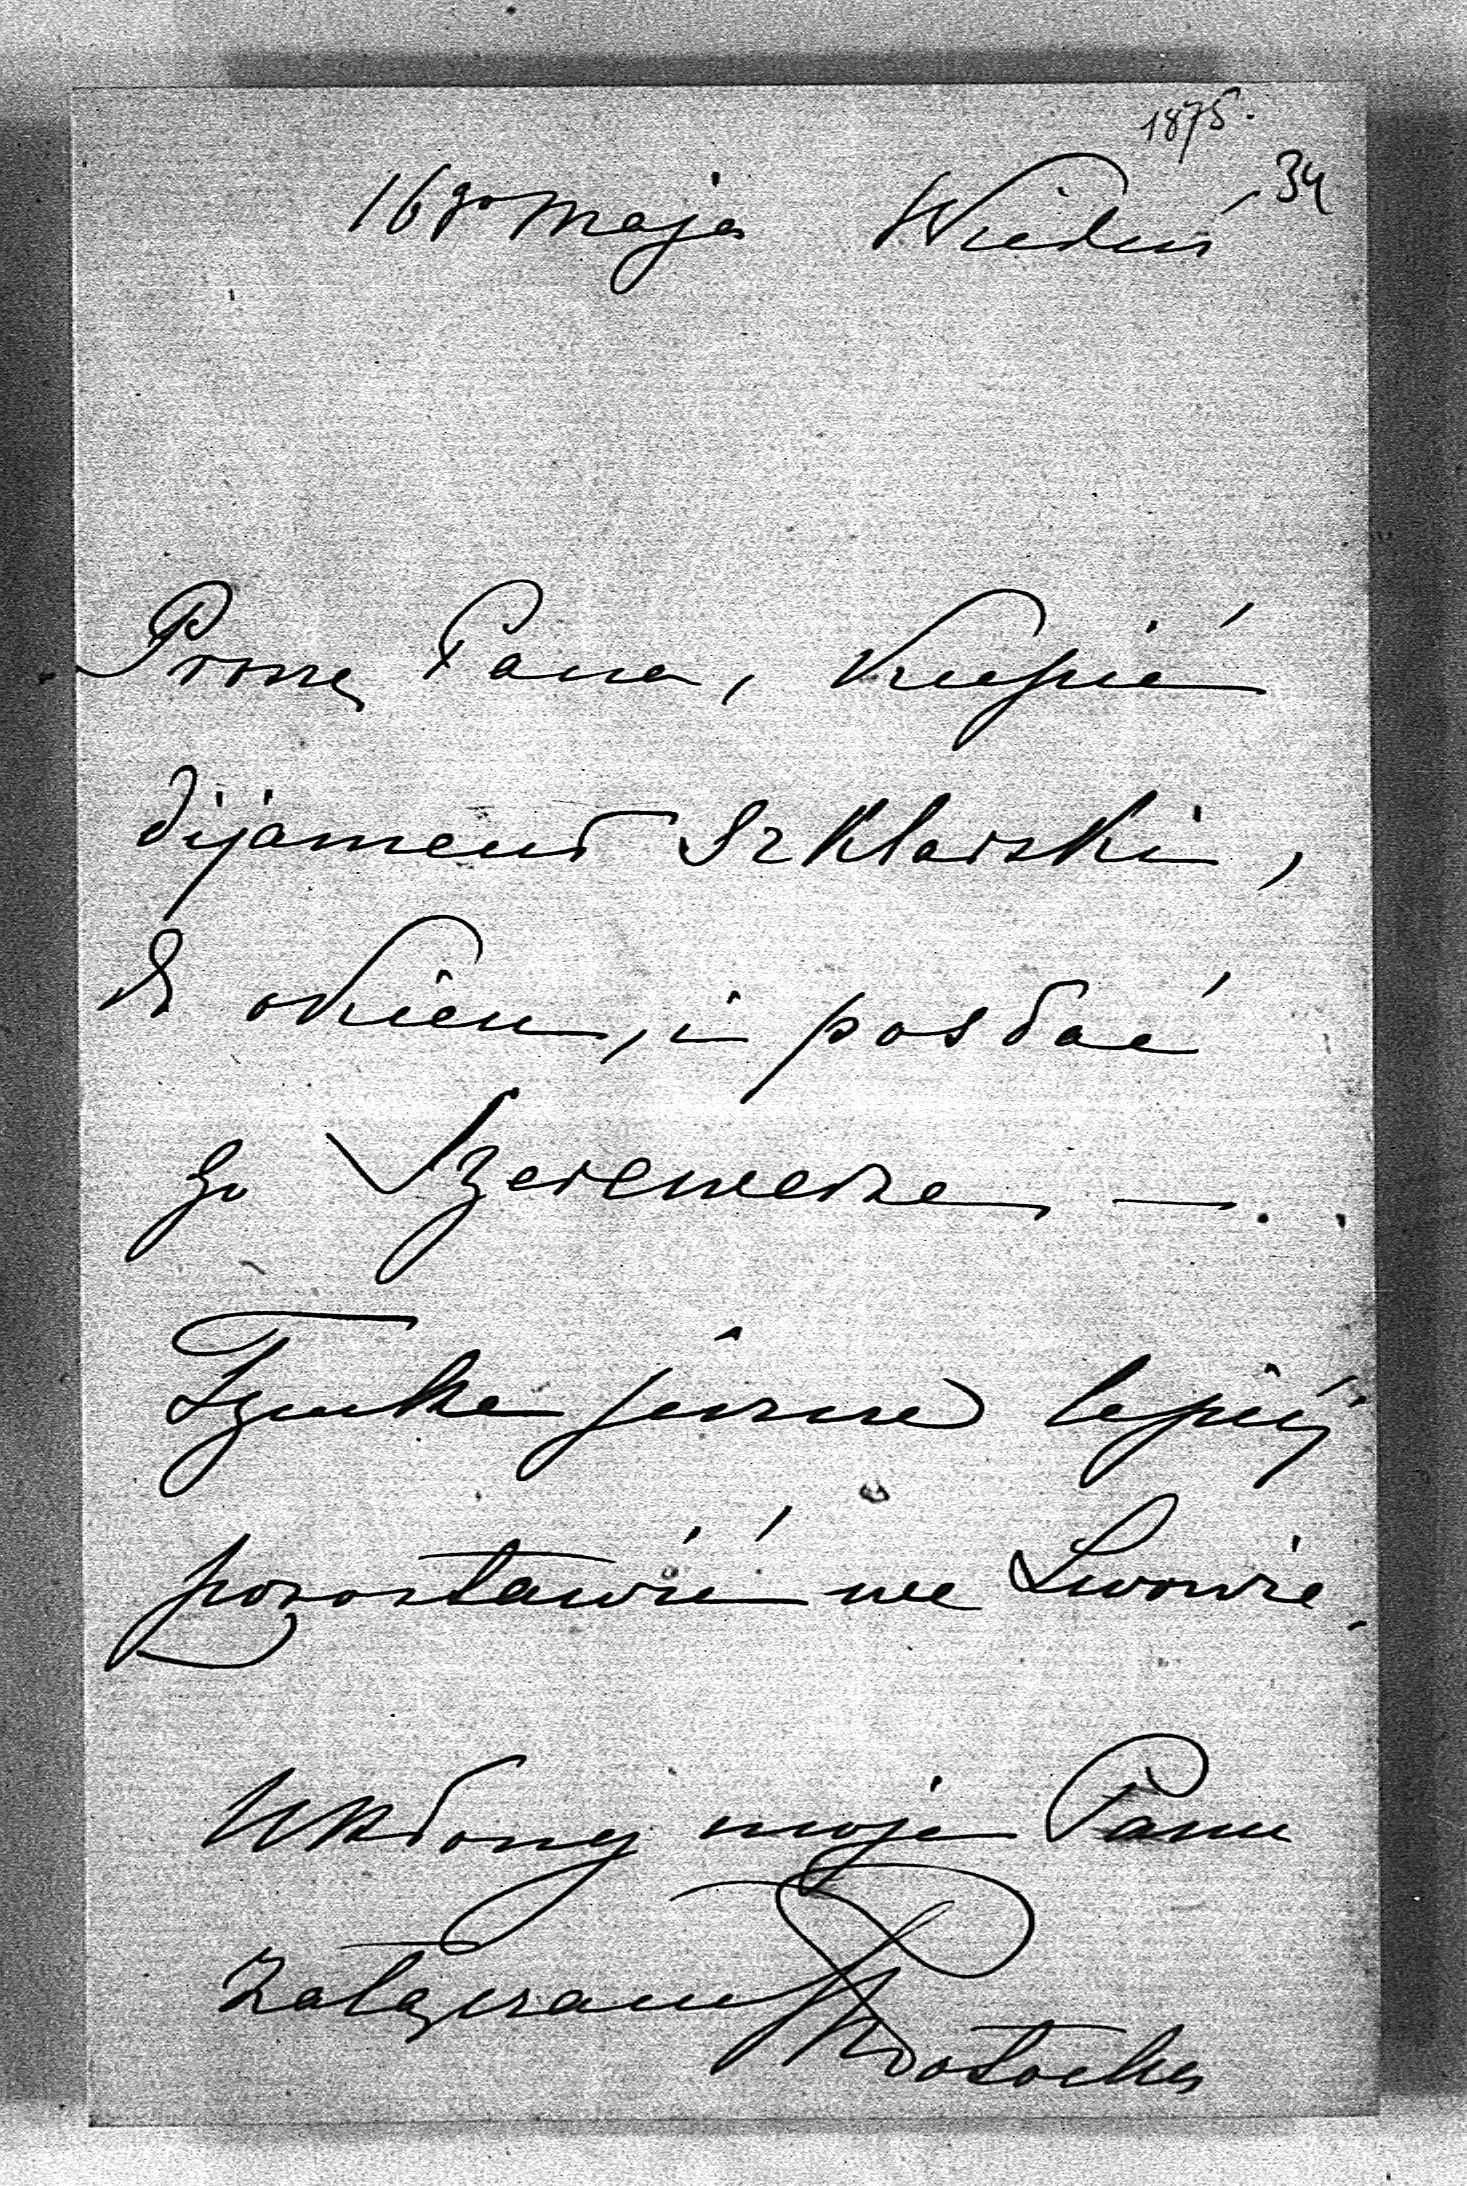 1875.
34
16go Maja Wiedeń
Proszę Pana, kupić
dijament Szklarski,
do okien, i posłać
go Szeremecie —.
jeszcze lepiéj
pozostawić we Lwowie.
Ukłony moje Panu
załączam
Potocka